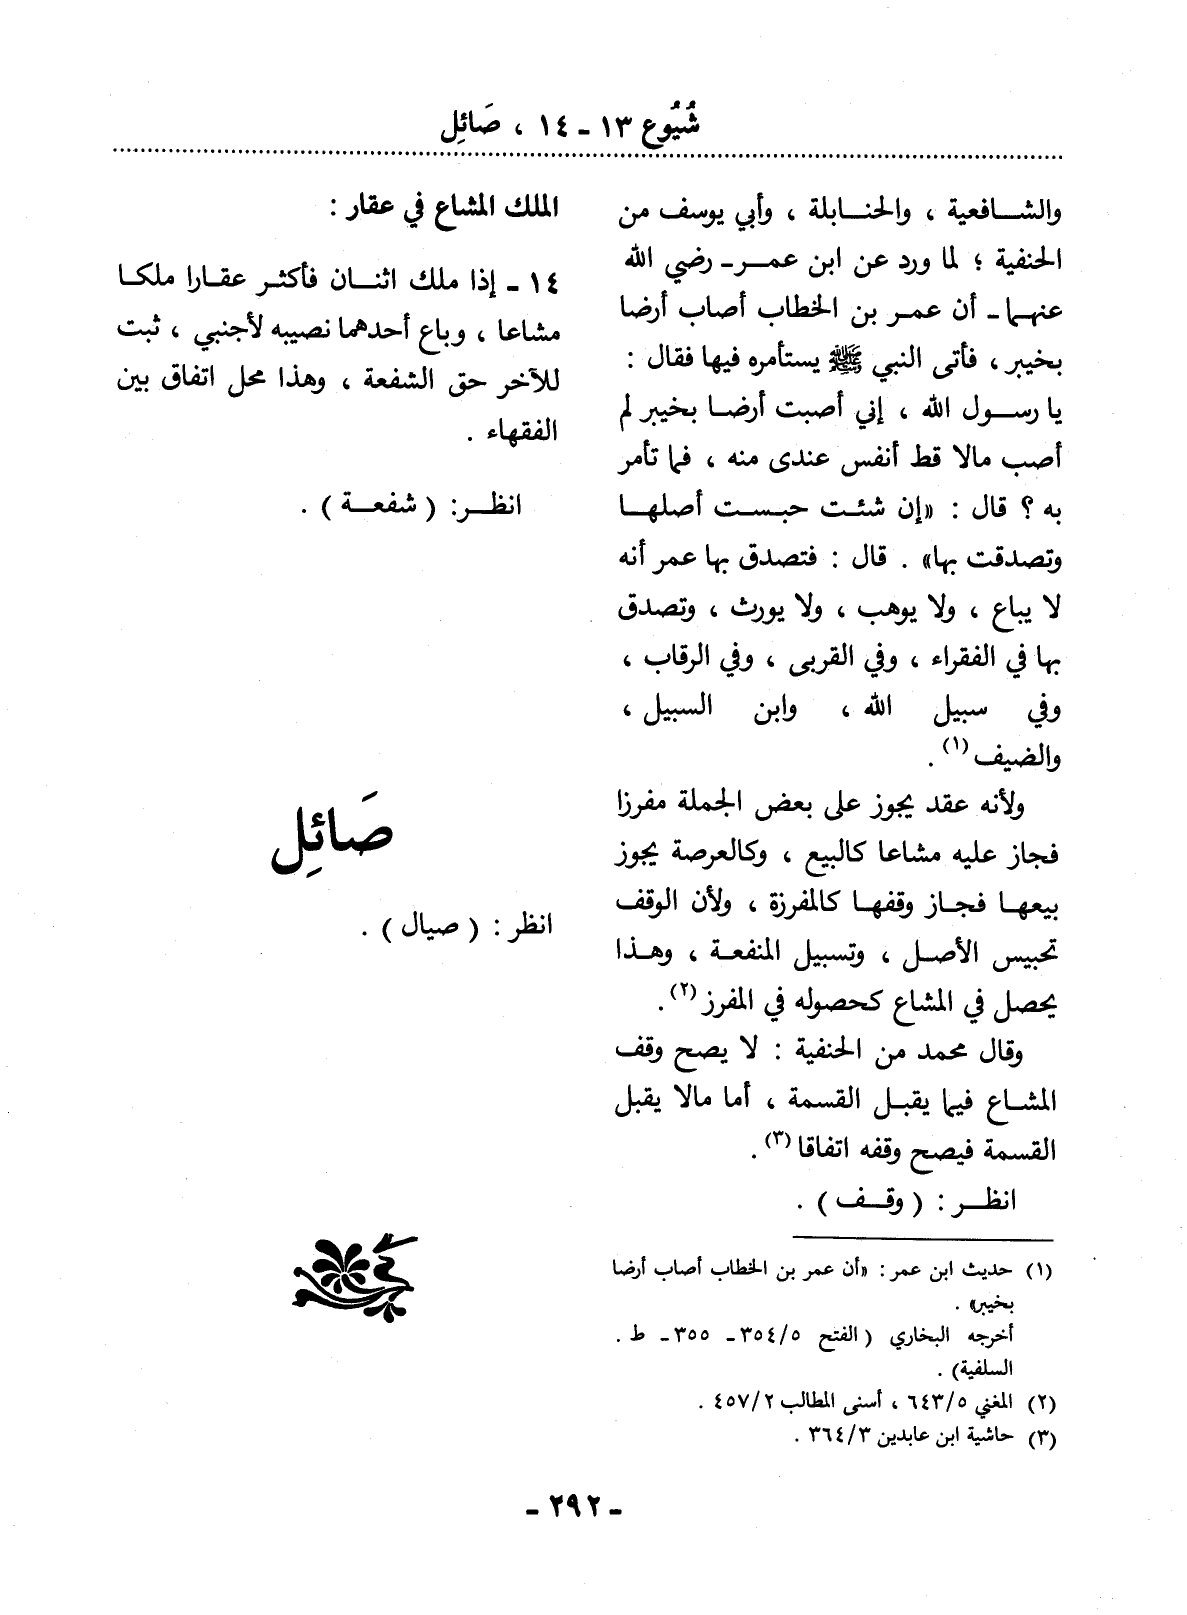 شُيُوع ١٣ - ١٤ ، صَائِل
والشافعية ، والحنابلة ، وأبي يوسف من
الحنفية ؛ لما ورد عن ابن عمر - رضي الله
عنهما - أن عمر بن الخطاب أصاب أرضا
بخيبر ، فأتى النبي ﷺ يستأمره فيها فقال :
يا رسول الله ، إني أصبت أرضا بخيبر لم
أصب مالا قط أنفس عندى منه ، فما تأمر
به ؟ قال : «إن شئت حبست أصلها
وتصدقت بها» . قال : فتصدق بها عمر أنه
لا يباع ، ولا يوهب ، ولا يورث ، وتصدق
بها في الفقراء ، وفي القربى ، وفي الرقاب ،
وفي سبيل الله ، وابن السبيل ،
والضيف (١) .
ولأنه عقد يجوز على بعض الجملة مفرزا
فجاز عليه مشاعا كالبيع ، وكالعرصة يجوز
بيعها فجاز وقفها كالمفرزة ، ولأن الوقف
تحبيس الأصل ، وتسبيل المنفعة ، وهذا
يحصل في المشاع كحصوله في المفرز (٢) .
وقال محمد من الحنفية : لا يصح وقف
المشاع فيما يقبل القسمة ، أما مالا يقبل
القسمة فيصح وقفه اتفاقا (٣) .
انظر : ( وقف ) .
(١) حديث ابن عمر : «أن عمر بن الخطاب أصاب أرضا
بخيبر» .
أخرجه البخاري ( الفتح ٣٥٤/٥ - ٣٥٥ - ط .
السلفية) .
(٢) المغني ٦٤٣/٥ ، أسنى المطالب ٤٥٧/٢ .
(٣) حاشية ابن عابدين ٣٦٤/٣ .
الملك المشاع في عقار :
١٤ - إذا ملك اثنان فأكثر عقارا ملكا
مشاعا ، وباع أحدهما نصيبه لأجنبي ، ثبت
للآخر حق الشفعة ، وهذا محل اتفاق بين
الفقهاء .
انظر: ( شفعة ) .
صَائِل
انظر : ( صيال ) .
- ٢٩٢ -